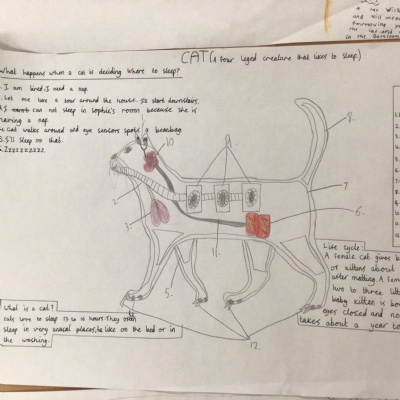 CAT (A four leged creature that likes to sleep)
What happens when a cat is deciding where to sleep?
1. I am tired. I need a nap.
2. Let me take a tour around the house. So start downstairs.
can not sleep in sophie's room because she is
having a nap.
cat walks around and eye sensors spots a beanbag.
I'll sleep on that.
Zzzzzzzzzz.
10
9.
8.
7.
6.
2
3.
11.
5.
12.
Life cycle:
A female cat gives b
of kittens about
after matting. A fema
two to three litt
baby kitten is bor
eyes closed and no
takes about a year to
What is a cat?
cats love to sleep 13 to 16 hours. They often
sleep in very unusal places, he like on the bed or in
the washing.